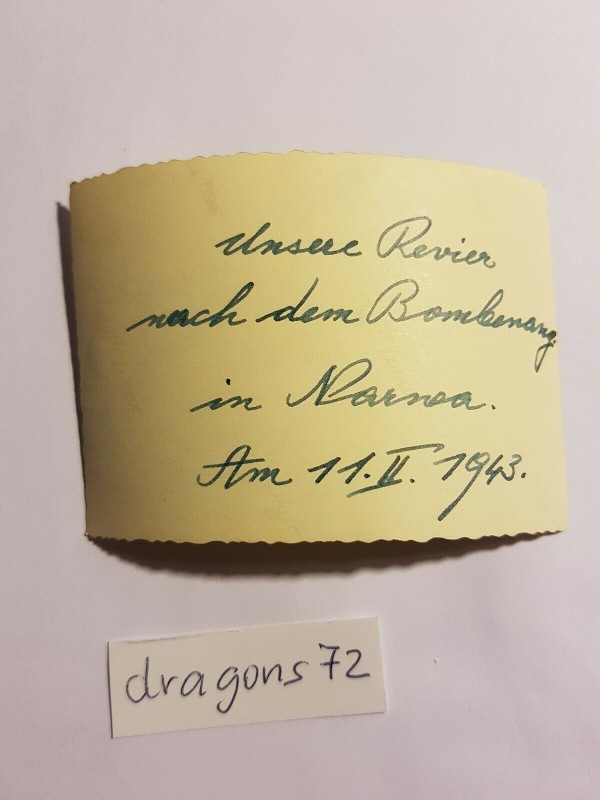 Unsere Revier
nach dem Bombenang.
in Narwa.
Am 11.II. 1943.
dragons72